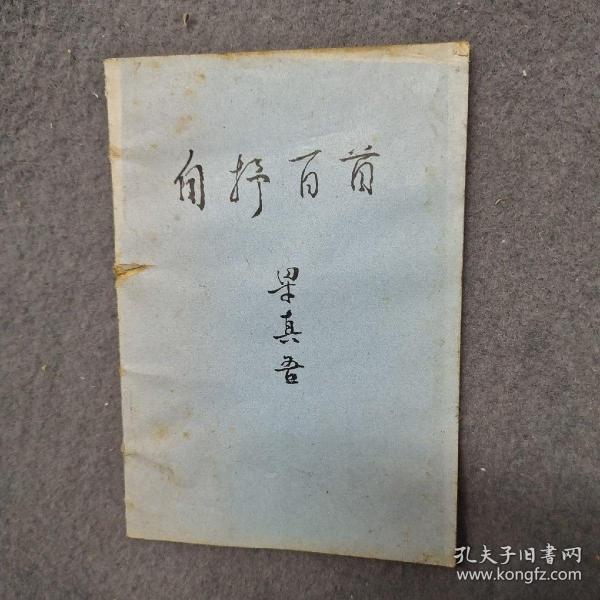 自抒百首
梁真吾
孔夫子旧書网
www.kongfz.com